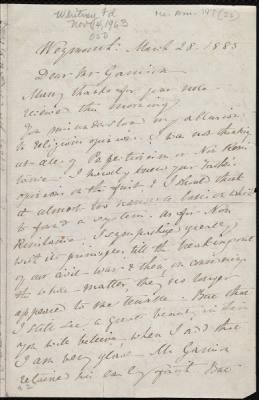 Whitney fd
Nov. 14, 1963
Ms. Am.
Weymouth: March 28. 1885
Dear Mr Garrison
Many thanks for your note
received this morning
You misunderstood my allusion
to religious opinions. I was not thinking
at all of Perfectionism or Non Resis
tance. I hardly knew your Father's
opinions on the first & I should think
it almost too vague a basis on which
to found a system. As for Non
Resistance I sympathized greatly
with its principles, till the breaking out
of our civil war & then on considering
the whole matter they no longer
appeared to me tenable. But that
I still see a great beauty in them
you will believe when I add that
I am very glad Mr. Garrison
retained his early faith. But